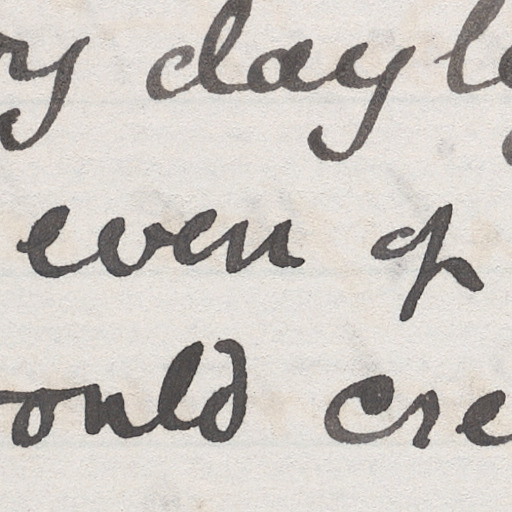 ry day l
even of
ould cre